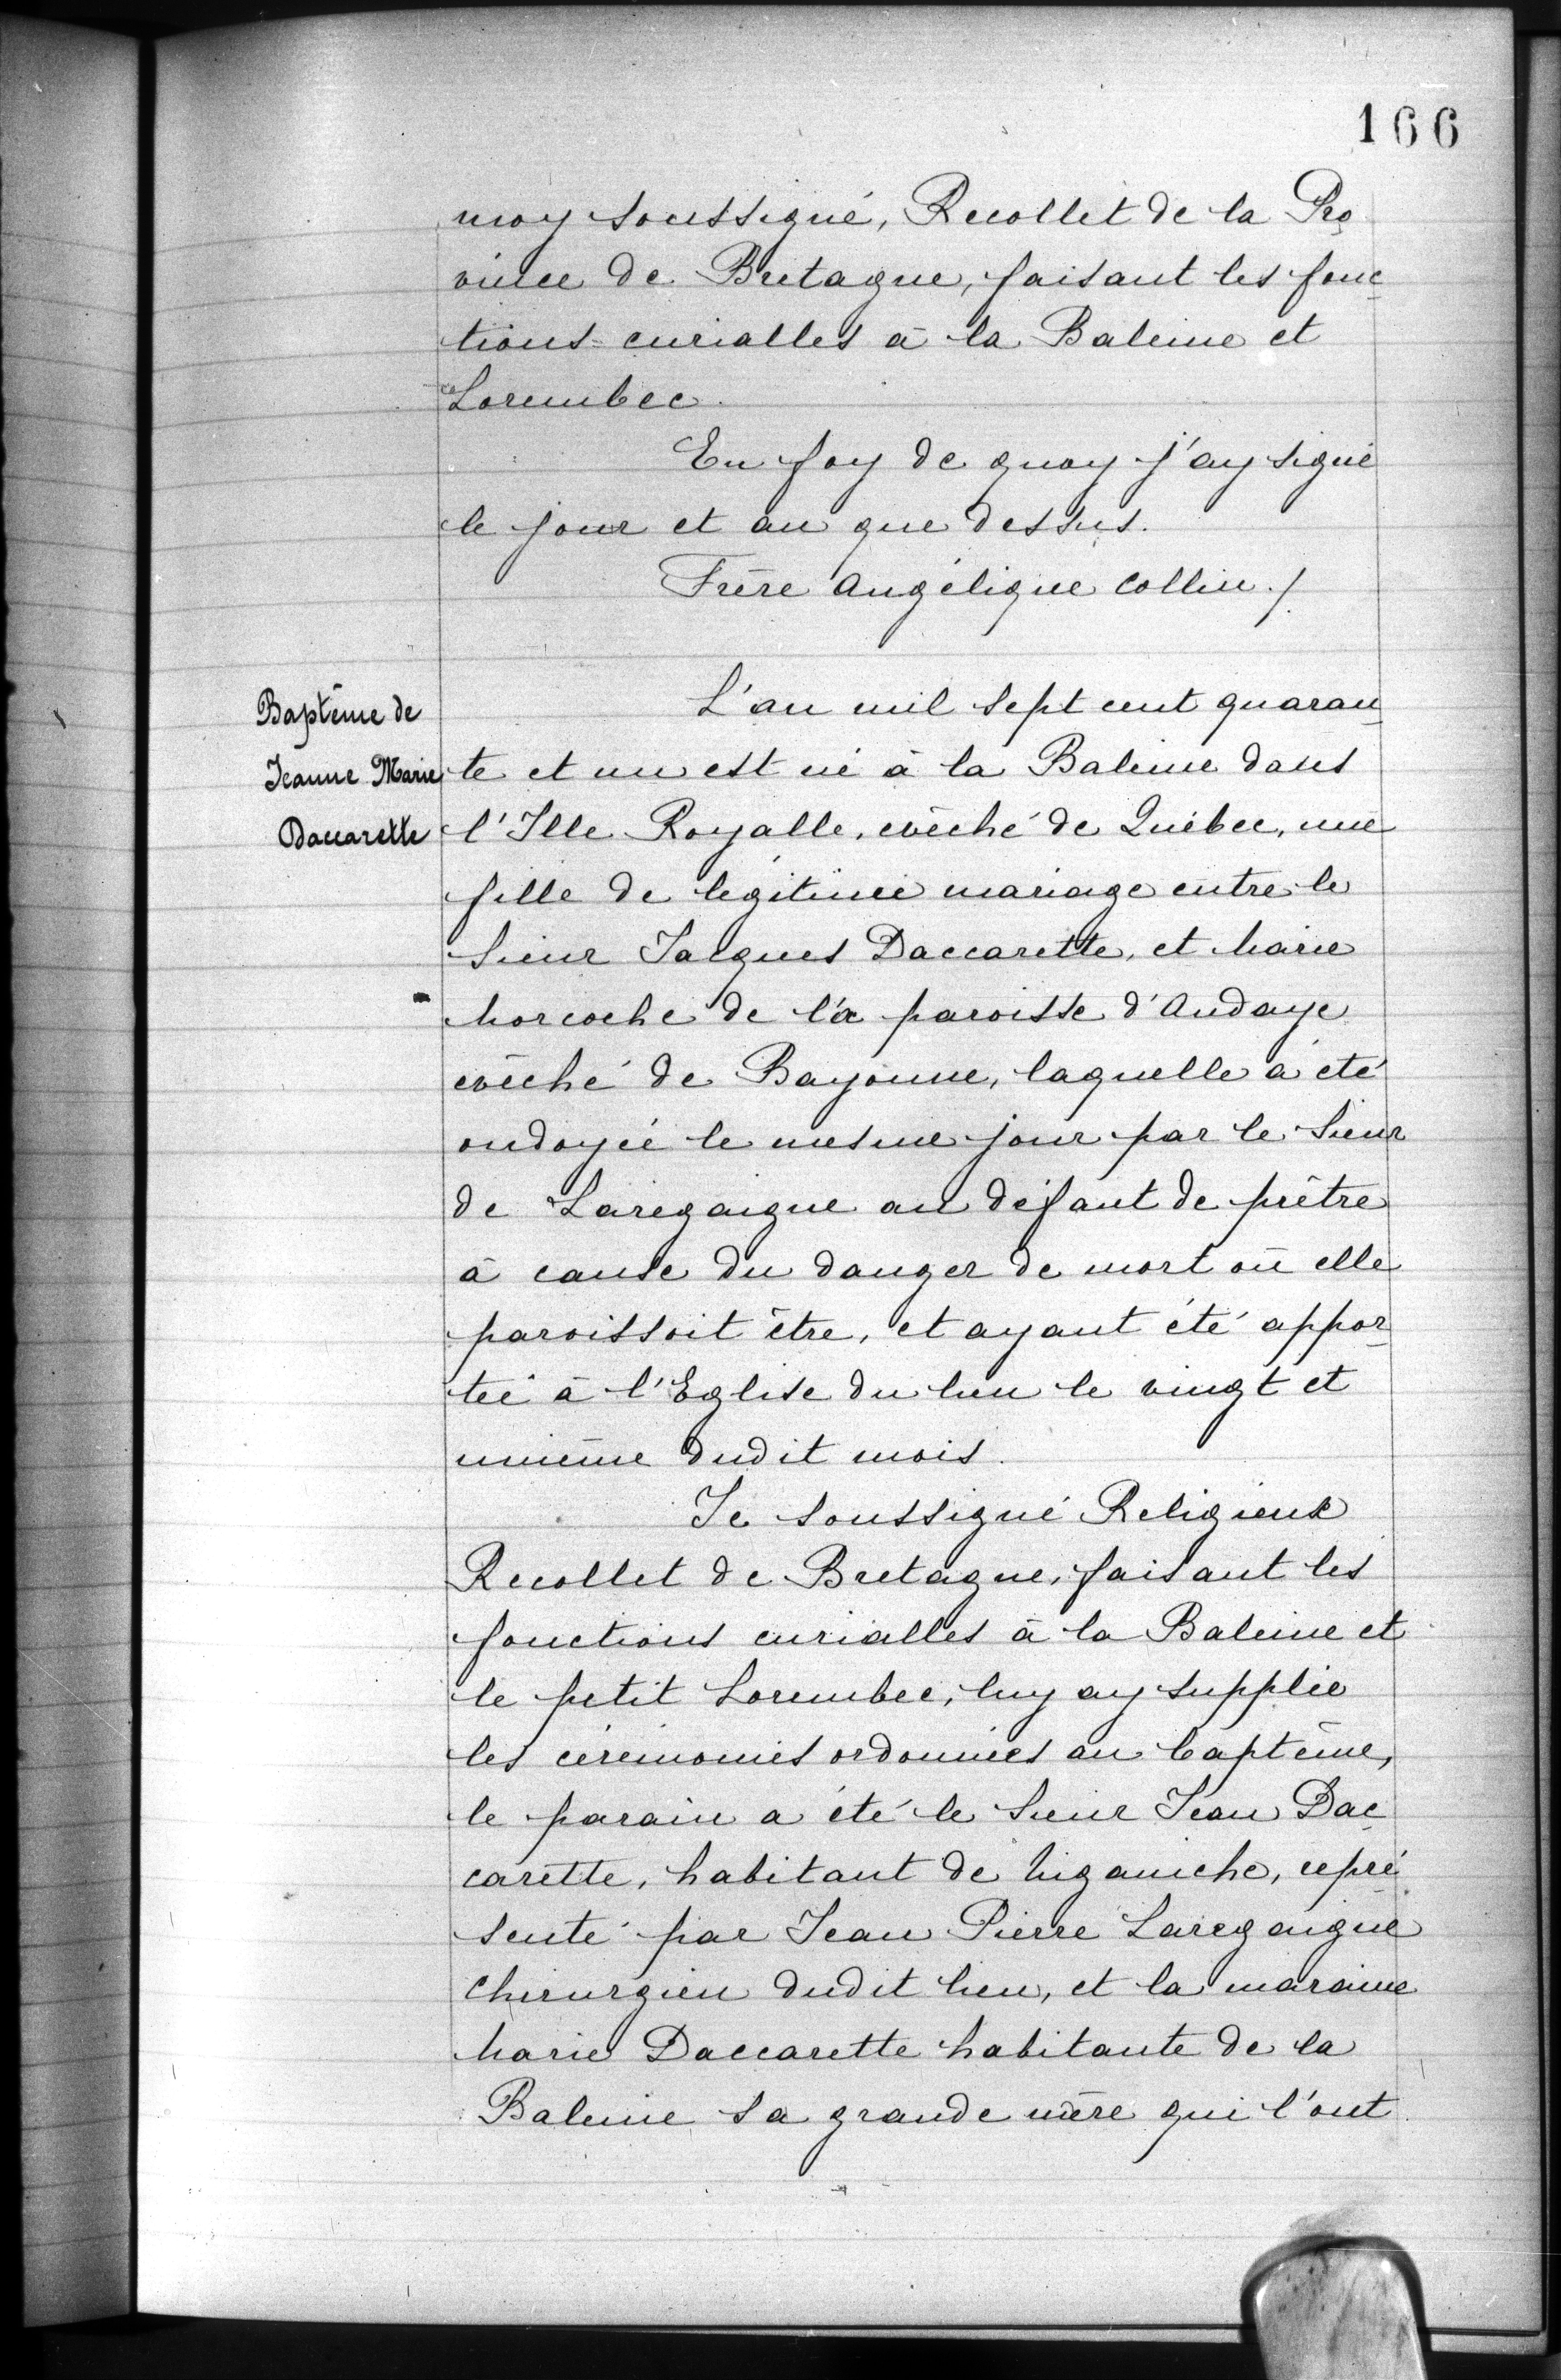 166
moy soussigné, Recollet de la Pro
vince de Bretagne, faisant les fonc
tions curialles à la Baleine et
Lorembec.
En foy de quoy j'ay signé
le jour et an que dessus.
Frère Angélique Collin./.
Baptême de
Jeanne Marie
Daccarette
L'an mil sept cent quaran
te et un est né à la Baleine dans
l'Ille Royalle, evêché de Québec, une
fille de légitime mariage entre le
Sieur Jacques Daccarette, et Marie
Morcoche de la paroisse d'Andaye
evêché de Bayonne, laquelle a été
ondoyée le mesme jour par le Sieur
de Laregaigue au défaut de prêtre
à cause du danger de mort où elle
paroissoit être, et ayant été appor
tée à l'Eglise du lieu le vingt et
unième dudit mois.
Je soussigné Religieux
Recollet de Bretagne, faisant les
fonctions curialles à la Baleine et
le petit Lorembec, luy ay supplée
les cérémonies ordonnées au baptême,
le parain a été le Sieur Jean Dac
carette, habitant de Niganiche, repré
senté par Jean Pierre Laregaigue
chirurgien dudit lieu, et la maraine
Marie Daccarette habitante de la
Baleine sa grande mère qui l'ont